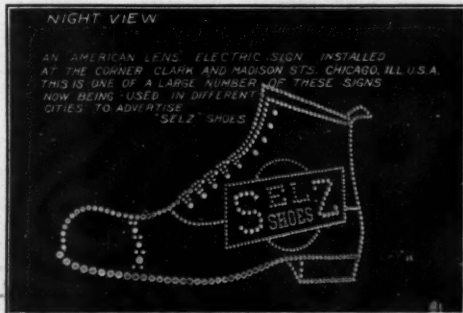 NIGHT VIEW
AN AMERICAN LENS ELECTRIC SIGN INSTALLED
AT THE CORNER CLARK AND MADISON STS. CHICAGO, ILL. U.S.A.
THIS IS ONE OF A LARGE NUMBER OF THESE SIGNS
NOW BEING USED IN DIFFERENT
CITIES TO ADVERTISE
"SELZ" SHOES
SELZ
SHOES